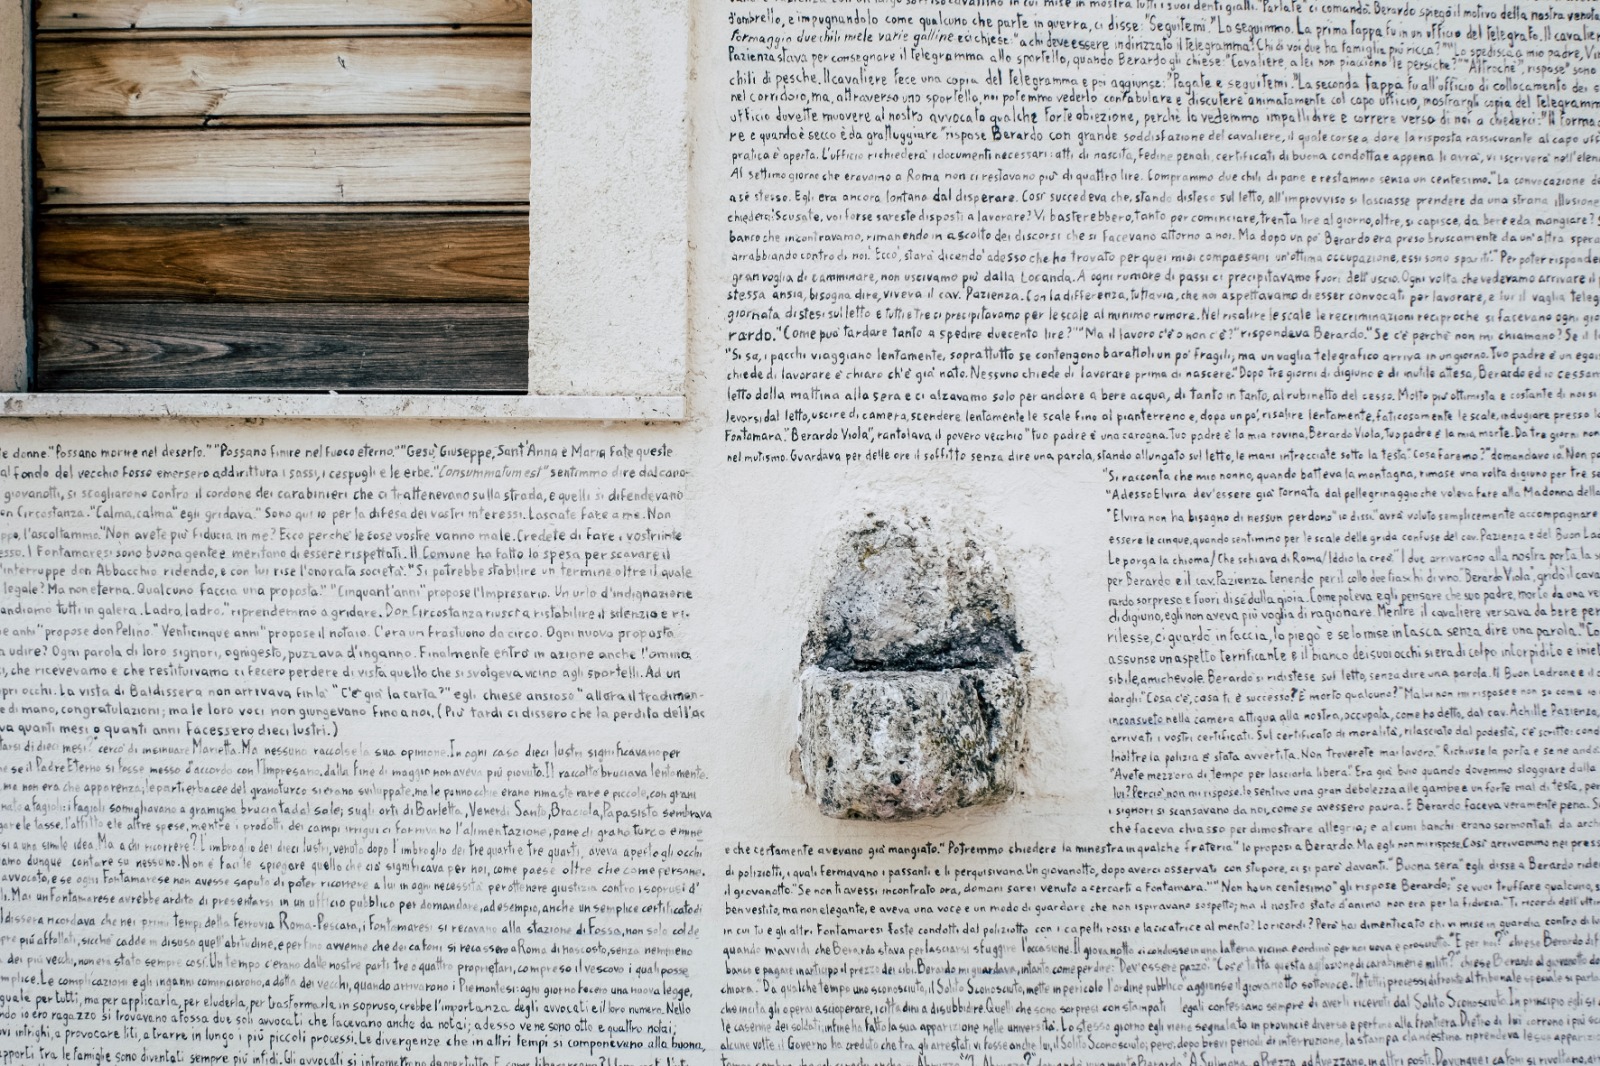 d'ombrello, e impugnandolo come qualcuno che parte in guerra, ci disse: "Seguitemi." Lo seguimmo. La prima tappa fu in un ufficio del telegrafo. Il cavalier
formaggio due chili miele varie galline e ci chiese: "a chi deve essere indirizzato il telegramma? Chi di voi due ha famiglia più ricca?" "Lo spedisca a mio padre, Vi
Pazienza stava per consegnare il telegramma allo sportello, quando Berardo gli chiese: "Cavaliere, a lei non piacciono le persiche?" "Altroché", rispose "sono
chili di pesche. Il cavaliere fece una copia del telegramma e poi aggiunse: "Pagate e seguitemi." La seconda tappa fu all'ufficio di collocamento dei s
nel corridoio, ma, attraverso uno sportello, noi potemmo vederlo confabulare e discutere animatamente col capo ufficio, mostrargli copia del telegramm
ufficio dovette muovere al nostro avvocato qualche forte obiezione, perché lo vedemmo impallidire e correre verso di noi a chiederci: "Il forma
re e quando è secco è da grattuggiare" rispose Berardo con grande soddisfazione del cavaliere, il quale corse a dare la risposta rassicurante al capo uff
pratica è aperta. L'ufficio richiederà i documenti necessari: atti di nascita, fedine penali, certificati di buona condotta e appena li avrà, vi iscriverà nell'elen
Al settimo giorno che eravamo a Roma non ci restavano più di quattro lire. Comprammo due chili di pane e restammo senza un centesimo. "La convocazione de
a sé stesso. Egli era ancora lontano dal disperare. Così succedeva che, stando disteso sul letto, all'improvviso si lasciasse prendere da una strana illusione
chiederci: Scusate, voi forse sareste disposti a lavorare? Vi basterebbero, tanto per cominciare, trenta lire al giorno, oltre, si capisce, da bere e da mangiare?
banco che incontravamo, rimanendo in ascolto dei discorsi che si facevano attorno a noi. Ma dopo un po' Berardo era preso bruscamente da un'altra spera
arrabbiando contro di noi. Ecco, starà dicendo adesso che ho trovato per quei miei compaesani un'ottima occupazione, essi sono spariti." Per poter risponder
gran voglia di camminare, non uscivamo più dalla Locanda. A ogni rumore di passi ci precipitavamo fuori dell'uscio. Ogni volta che vedevamo arrivare il p
stessa ansia, bisogna dire, viveva il cav. Pazienza. Con la differenza, tuttavia, che noi aspettavamo di esser convocati per lavorare, e lui il vaglia teleg
giornata distesi sul letto e tutti e tre ci precipitavamo per le scale al minimo rumore. Nel risalire le scale le recriminazioni reciproche si facevano ogni gio
rardo. "Come può tardare tanto a spedire duecento lire?" "Ma il lavoro c'è o non c'è?" rispondeva Berardo. "Se c'è perché non mi chiamano? Se il l
"Si sa, i pacchi viaggiano lentamente, soprattutto se contengono barattoli un po' fragili, ma un vaglia telegrafico arriva in un giorno. Tuo padre è un egoi
chiede di lavorare è chiaro ch'è già nato. Nessuno chiede di lavorare prima di nascere." Dopo tre giorni di digiuno e di inutile attesa, Berardo ed io cessam
letto dalla mattina alla sera e ci alzavamo solo per andare a bere acqua, di tanto in tanto, al rubinetto del cesso. Molto più ottimista e costante di noi si
levarsi dal letto, uscire di camera, scendere lentamente le scale fino al pianterreno e, dopo un po', risalire lentamente, faticosamente le scale, indugiare presso l
Fontamara. "Berardo Viola", rantolava il povero vecchio "tuo padre è una carogna. Tuo padre è la mia rovina, Berardo Viola, tuo padre è la mia morte. Da tre giorni non
nel mutismo. Guardava per delle ore il soffitto senza dire una parola, stando allungato sul letto, le mani intrecciate sotto la testa. "Cosa faremo?" domandavo io. "Non p
"Si racconta che mio nonno, quando batteva la montagna, rimase una volta digiuno per tre
"Adesso Elvira dev'essere già tornata dal pellegrinaggio che voleva fare alla Madonna della
"Elvira non ha bisogno di nessun perdono" io dissi "avrà voluto semplicemente accompagnare
essere le cinque, quando sentimmo per le scale delle grida confuse del cav. Pazienza e del Buon La
Le porga la chioma / Che schiava di Roma / Iddio la creò." I due arrivarono alla nostra porta
per Berardo e il cav. Pazienza tenendo per il collo due fiaschi di vino. "Berardo Viola", gridò il cava
rardo sorpreso e fuori di sé dalla gioia. Come poteva egli pensare che suo padre, morto da una
di digiuno, egli non aveva più voglia di ragionare. Mentre il cavaliere versava da bere per
rilesse, ci guardò in faccia, lo piegò e se lo mise in tasca senza dire una parola. "Co
assunse un aspetto terrificante e il bianco dei suoi occhi si era di colpo intorpidito e iniet
sibile, amichevole. Berardo si ridistese sul letto, senza dire una parola. Il Buon Ladrone e il c
dargli "Cosa c'è, cosa ti è successo? È morto qualcuno?" Ma lui non mi rispose
inconsueto nella camera attigua alla nostra, occupata, come ho detto, dal cav. Achille Pazienza,
arrivati i vostri certificati. Sul certificato di moralità, rilasciato dal podestà, c'è scritto: cond
Inoltre la polizia è stata avvertita. Non troverete mai lavoro." Richiuse la porta e se ne andò
"Avete mezz'ora di tempo per lasciarla libera." Era già buio quando dovemmo sloggiare dalla
lui? Perciò non mi rispose. Io sentivo una gran debolezza alle gambe e un forte mal di testa, per
i signori si scansavano da noi, come se avessero paura. E Berardo faceva veramente
che faceva chiasso per dimostrare allegria; e alcuni banchi erano sormontati da
e che certamente avevano già mangiato." Potremmo chiedere la minestra in qualche frateria" io proposi a Berardo. Ma egli non mi rispose. Così arrivammo nei press
di poliziotti, i quali fermavano i passanti e li perquisivano. Un giovanotto, dopo averci osservati con stupore, ci si parò davanti. "Buona sera" egli disse a Berardo
il giovanotto. "Se non ti avessi incontrato ora, domani sarei venuto a cercarti a Fontamara." "Non ho un centesimo" gli rispose Berardo; "se vuoi truffare qualcuno, s
ben vestito, ma non elegante, e aveva una voce e un modo di guardare che non ispiravano sospetto; ma il nostro stato d'animo non era per la fiducia. "Ti ricordi dell'ultim
in cui tu e gli altri Fontamaresi foste condotti dal poliziotto con i capelli rossi e la cicatrice al mento? Lo ricordi? Però hai dimenticato chi vi mise in guardia contro di lu
quando m'avvidi che Berardo stava per lasciarsi sfuggire l'occasione. Il giovanotto ci condusse in una latteria vicina e ordinò per noi uova e prosciutto. "E per noi?" chiese Berardo
banco e pagare in anticipo il prezzo dei cibi. Berardo mi guardava, intanto, come per dire: Dev'essere pazzo. "Cos'è tutta questa agitazione di carabinieri e militi?" chiese Berardo al giovanotto
chiara: "Da qualche tempo uno sconosciuto, il Solito Sconosciuto, mette in pericolo l'ordine pubblico" aggiunse il giovanotto sottovoce.
che incita gli operai a scioperare, i cittadini a disubbidire. Quelli che sono sorpresi con stampati illegali confessano sempre di averli ricevuti dal Solito Sconosciuto. In principio egli si
le caserme dei soldati; infine ha fatto la sua apparizione nelle università. Lo stesso giorno egli viene segnalato in provincie diverse e perfino alla frontiera. Dietro di lui corrono i più
alcune volte il Governo ha creduto che tra gli arrestati vi fosse anche lui, il Solito Sconosciuto; però, dopo brevi periodi di interruzione, la stampa clandestina riprendeva le sue apparizi
e donne. "Possano morire nel deserto." "Possano finire nel fuoco eterno." "Gesù, Giuseppe, Sant'Anna e Maria fate queste
al fondo del vecchio fosso emersero addirittura i sassi, i cespugli e le erbe. "Consummatum est" sentimmo dire dal cano-
giovanotti, si scagliarono contro il cordone dei carabinieri che ci trattenevano sulla strada, e quelli si difendevano
on Circostanza. "Calma, calma" egli gridava. "Sono qui io per la difesa dei vostri interessi. Lasciate fare a me. Non
ppo, l'ascoltammo. "Non avete più fiducia in me? Ecco perché le cose vostre vanno male. Credete di fare i vostri inte
esso. I Fontamaresi sono buona gente e meritano di essere rispettati. Il Comune ha fatto la spesa per scavare il
l'interruppe don Abbacchio ridendo, e con lui rise l'onorata società. "Si potrebbe stabilire un termine oltre il quale
legale? Ma non eterna. Qualcuno faccia una proposta." "Cinquant'anni" propose l'Impresario. Un urlo d'indignazione
andiamo tutti in galera. Ladro, ladro." riprendemmo a gridare. Don Circostanza riuscì a ristabilire il silenzio e ri-
e anni" propose don Pelino. "Venticinque anni" propose il notaio. C'era un frastuono da circo. Ogni nuova proposta
a udire? Ogni parola di loro signori, ogni gesto, puzzava d'inganno. Finalmente entrò in azione anche l'omino
i, che ricevevamo e che restituivamo ci fecero perdere di vista quello che si svolgeva vicino agli sportelli. Ad un
pri occhi. La vista di Baldissera non arrivava fin là. "C'è già la carta?" egli chiese ansioso "allora il tradimen-
e di mano, congratulazioni; ma le loro voci non giungevano fino a noi. (Più tardi ci dissero che la perdita dell'ac
va quanti mesi o quanti anni facessero dieci lustri.)
tarsi di dieci mesi" cercò di insinuare Marietta. Ma nessuno raccolse la sua opinione. In ogni caso dieci lustri significavano per
e se il Padre Eterno si fosse messo d'accordo con l'Impresario, dalla fine di maggio non aveva più piovuto. Il raccolto bruciava lentamente.
ma non era che apparenza; le parti erbacee del granoturco si erano sviluppate, ma le pannocchie erano rimaste rare e piccole, con grani
nata a fagioli: i fagioli somigliavano a gramigna bruciata dal sole; sugli orti di Barletta, Venerdì Santo, Braciola, Papasisto sembrava
gare le tasse, l'affitto e le altre spese, mentre i prodotti dei campi irrigui ci fornivano l'alimentazione, pane di granoturco e mine
si a una simile idea. Ma a chi ricorrere? L'imbroglio dei dieci lustri, venuto dopo l'imbroglio dei tre quarti e tre quarti, aveva aperto gli occhi
amo dunque contare su nessuno. Non è facile spiegare quello che ciò significava per noi, come paese oltre che come persone.
avvocato, e se ogni Fontamarese non avesse saputo di poter ricorrere a lui in ogni necessità per ottenere giustizia contro i soprusi d'
li. Mai un fontamarese avrebbe ardito di presentarsi in un ufficio pubblico per domandare, ad esempio, anche un semplice certificato di
ldissera ricordava che nei primi tempi della ferrovia Roma-Pescara, i Fontamaresi si recavano alla stazione di Fossa, non solo col de
pre più affollati, sicché cadde in disuso quell'abitudine, e perfino avvenne che dei cafoni si recassero a Roma di nascosto, senza nemmeno
dei più vecchi, non era stato sempre così. Un tempo c'erano dalle nostre parti tre o quattro proprietari, compreso il vescovo i quali posse
mplice. Le complicazioni e gli inganni cominciarono, a detta dei vecchi, quando arrivarono i Piemontesi: ogni giorno fecero una nuova legge,
guale per tutti, ma per applicarla, per eluderla, per trasformarla in sopruso, crebbe l'importanza degli avvocati e il loro numero. Nello
ndo io ero ragazzo si trovavano a Fossa due soli avvocati che facevano anche da notai; adesso ve ne sono otto e quattro notai;
vi intrighi, a provocare liti, a trarre in lungo i più piccoli processi. Le divergenze che in altri tempi si componevano alla buona,
apporti tra le famiglie sono diventati sempre più infidi. Gli avvocati si intromettono dappertutto. E come liberarcene?